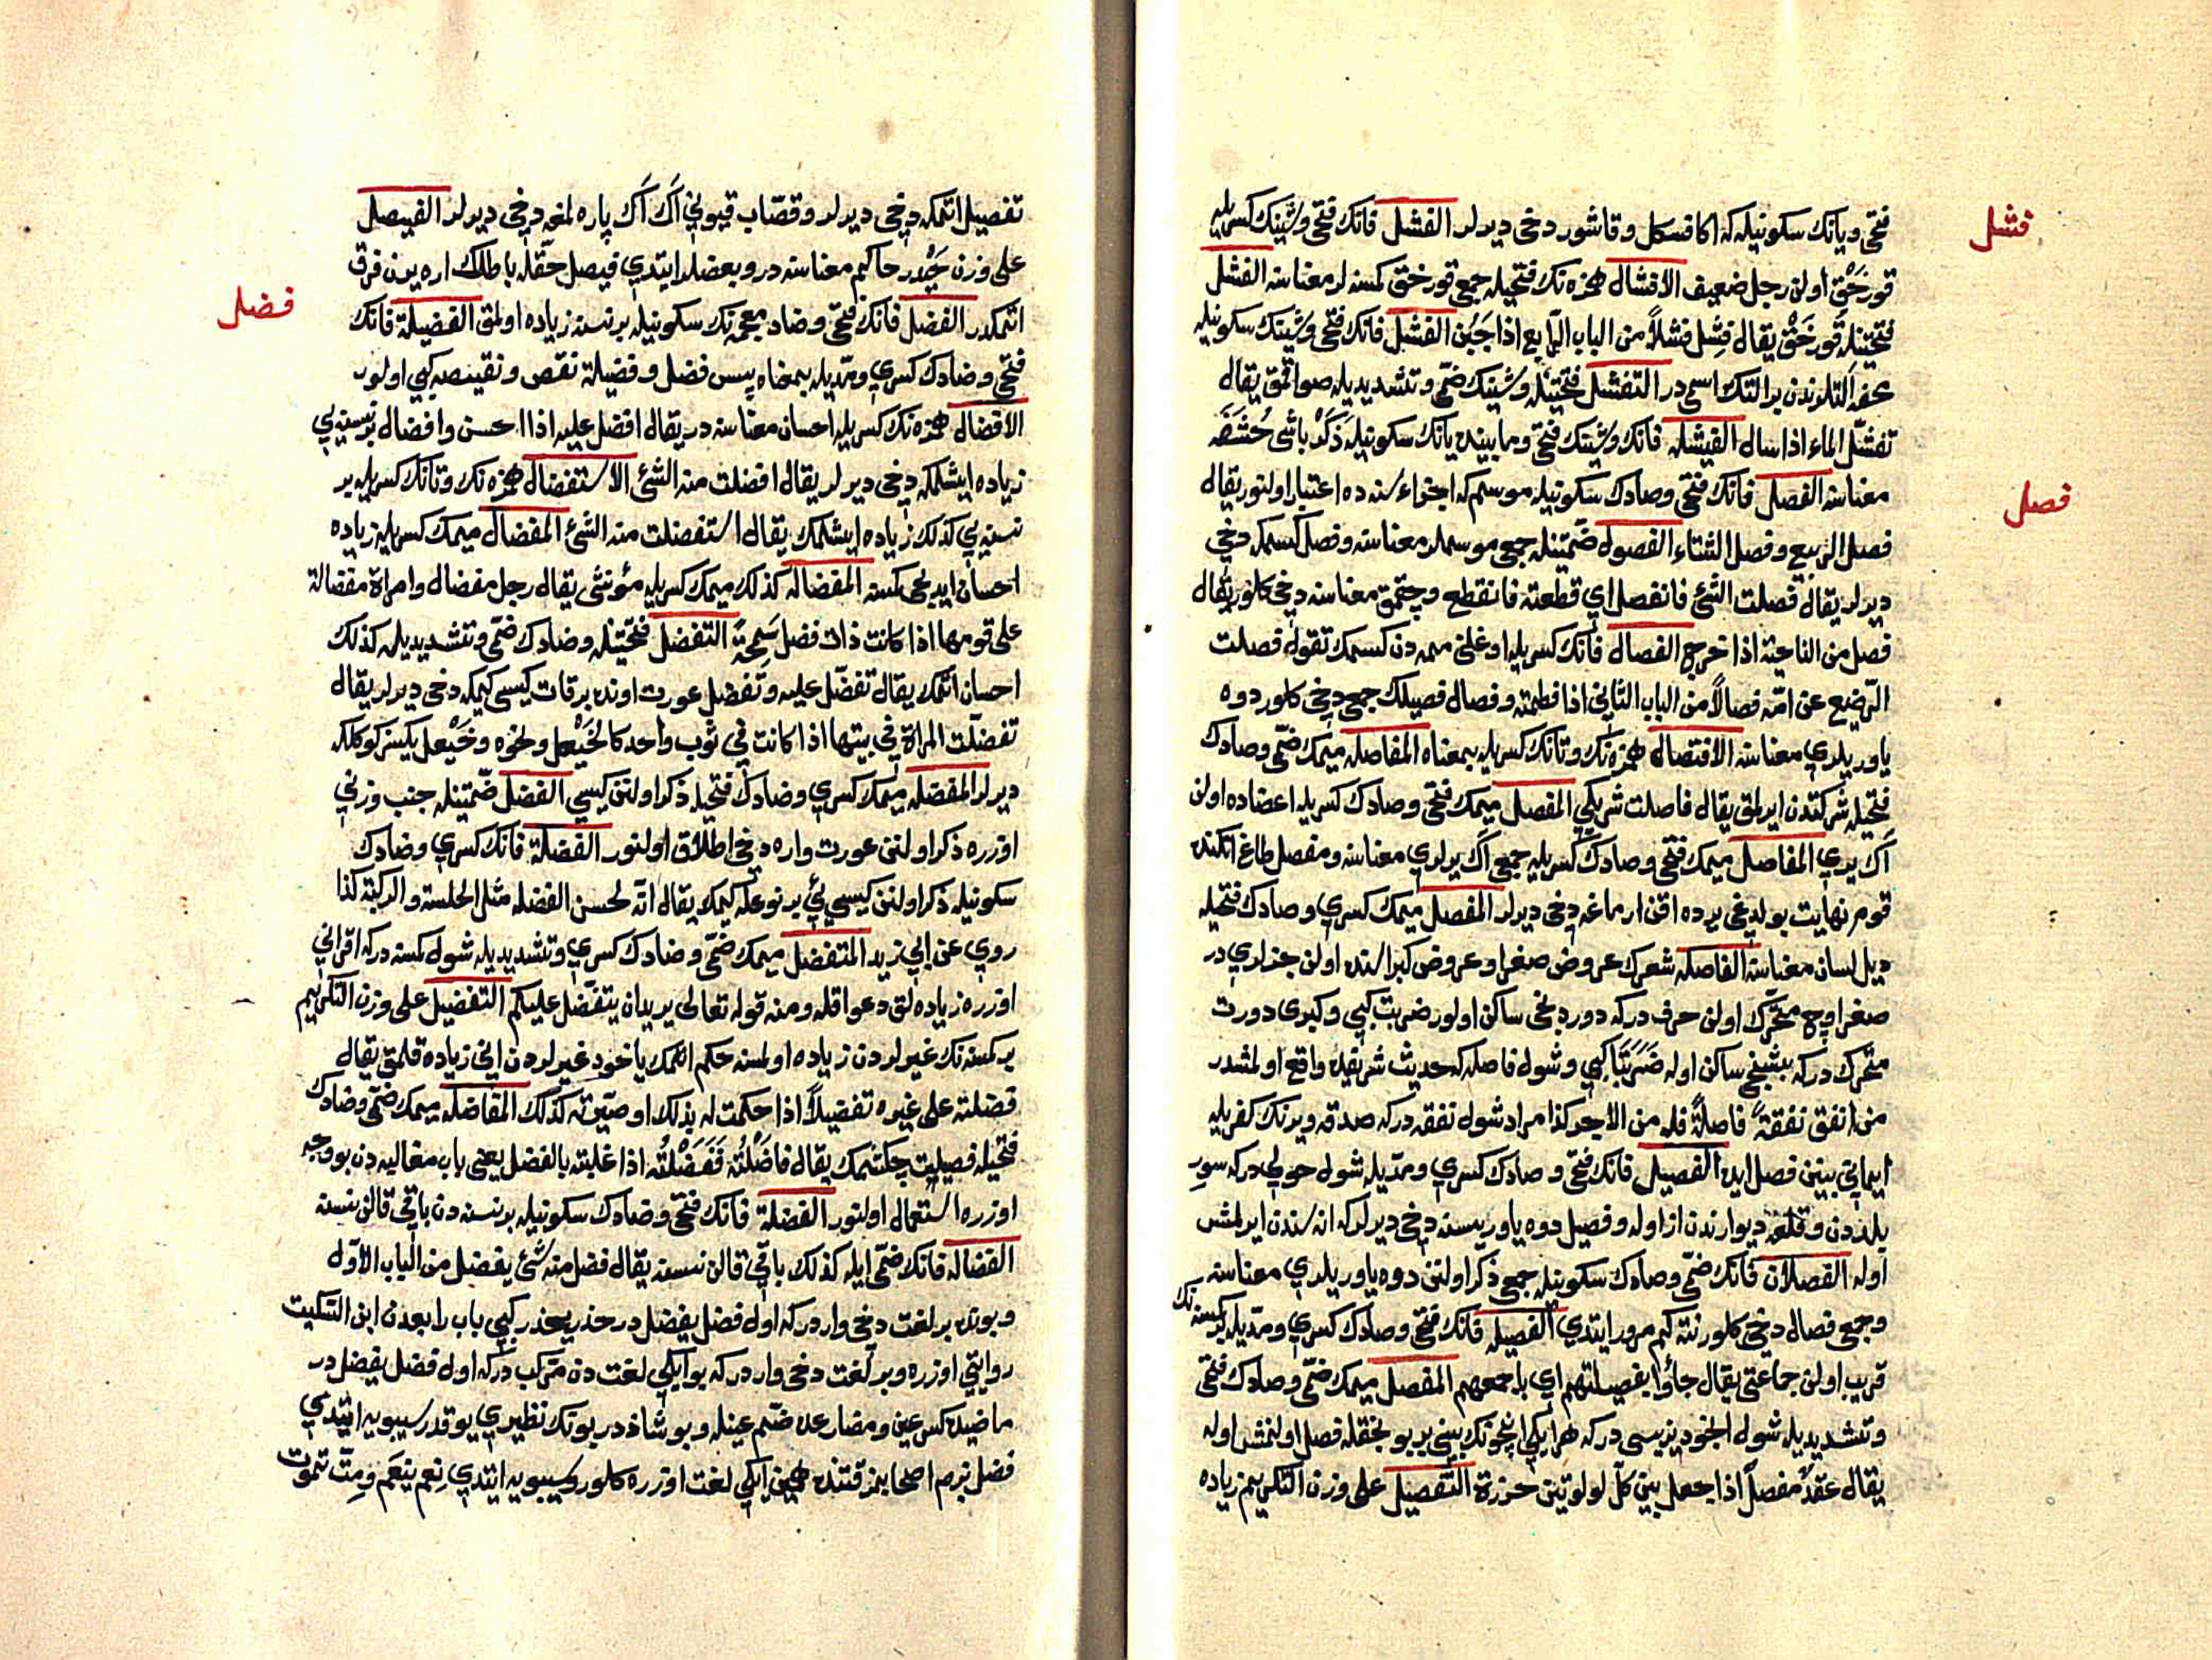 فشل
فتحى ويانك سكونيله كه اكا فسكل وقاشور دخى ديرلر الفشل فانك فتحى وشينك كسريله
قورخق اولن رجل ضعيف الافشال همزه نك فتحيله جمعى قورخق كمسنه لر معناسنه الفشل
فتحتينله قورخمق يقال فشل فشلاً من الباب الرابع اذا جبن الفشل فانك فتحى وشينك سكونيله
التلرندن بر التك اسمى در التفشل فتحتينله وشينك ضمى وتشديديله صو اقمق يقال
تفشل الماء اذا سال الفيشله فانك وشينك فتحى وما بينده يانك سكونيله ذكر باشى حشفه
معناسنه الفصل فانك فتحى وصادك سكونيله موسم كه اجزاء سنه ده اعتبار اولنور يقال
فصل
فصل الربيع وفصل الشتاء الفصول ضمتينله جمعى موسملر معناسنه وفصل كسمكه دخى
ديرلر يقال فصلت الشئ فانفصل اي قطعته فانقطع وچقمق معناسنه دخى كلور يقال
فصل من الناحية اذا خرج الفصال فانك كسريله اوغلنى ممه دن كسمك تقول فصلت
الرضيع عن امه فصالاً من الباب الثانى اذا فطمته وفصال فصيلك جمعى دخى كلور دوه
ياوريلرى معناسنه الافتصال همزه نك وتانك كسريله بمعناه المفاصله ميمك ضمى وصادك
فتحيله شركتدن ايرلمق يقال فاصلت شريكي المفصل ميمك فتحى وصادك كسريله اعضاده اولن
اك يرى المفاصل ميمك فتحى وصادك كسريله جمعى اك يرلرى معناسنه ومفصل طاغ اتكنده
قوم نهايت بولديغى يرده اقن ارماغه دخى ديرلر المفصل ميمك كسرى وصادك فتحيله
ديل لسان معناسنه الفاصله شعرك عروض صغرا وعروض كبراسنده اولن جزلرى در
صغرا اوچ متحرك اولن حرف دركه دوردنجى ساكن اولور ضربت كبى وكبرى دورت
متحرك دركه بشنجى ساكن اوله ضربتا كبى وشول فاصله كه حديث شريفده واقع اولمشدر
من انفق نفقة فاصلة فله من الاجر كذا مراد شول نفقه دركه صدقه ويرنك كفريله
ايمانى بينن فصل ايده الفصيل فانك فتحى وصادك كسرى ومديله شول حولى دركه سور
بلددن وقلعه ديوارندن از اوله وفصيل دوه ياوريسنه دخى ديرلركه اناسندن ايرلمش
اوله الفصلان فانك ضمى وصادك سكونيله جمعى ذكر اولنن دوه ياوريلرى معناسنه
وجمعى فصال دخى كلور نته كم مرور ايتدى الفصيله فانك فتحى وصادك كسرى ومديله بركمسنه نك
قريب اولن جماعتى يقال جاؤا بفصيلتهم اي باجمعهم المفصل ميمك ضمى وصادك فتحى
وتشديديله شول انجو ديزيسى دركه هر ايكى انجونك بينى بر بونجقله فصل اولنمش اوله
يقال عقد مفصل اذا جعل بين كل لولوتين خرزة التفصيل على وزن التكريم زياده
تفصيل اتمكه دخى ديرلر وقصاب قيونى اك اك پاره لمغه دخى ديرلر الفيصل
على وزن حيدر حاكم معناسنه در وبعضلر ايتدى فيصل حقله باطلك اره يرن فرق
اتمكدر الفضل فانك فتحى وضاد معجمه نك سكونيله بر نسنه زياده اولمق الفضيلة فانك
فضل
فتحى وضادك كسرى ومديله بمعناه پس فضل وفضيلة نقص ونقيصه كبى اولور
الافضال همزه نك كسريله احسان معناسنه در يقال افضل عليه اذا احسن وافضال بر نسنه يى
زياده ايشلمكه دخى ديرلر يقال افضلت منه الشئ الاستفضال همزه نك وتانك كسريله بر
نسنه يى كذلك زياده ايشلمك يقال استفضلت منه الشئ المفضال ميمك كسريله زياده
احسان ايديجى كمسنه المفضاله كذلك ميمك كسريله مؤنثى يقال رجل مفضال وامراة مفضالة
على قومها اذا كانت ذات فضل سمحة التفضل فتحتينله وضادك ضمى وتشديديله كذلك
احسان اتمك يقال تفضل عليه وتفضل عورت اونده بر قات كيسى كيمكه دخى ديرلر يقال
تفضلت المراة في بيتها اذا كانت في ثوب واحد كالخيعل ونحوه وخيعل يكسز كوكلكه
ديرلر المفضله ميمك كسرى وضادك فتحيله ذكر اولنن كيسى الفضل ضمتينله جنب وزنى
اوزره ذكر اولنن عورت واره دخى اطلاق اولنور الفضلة فانك كسرى وضادك
سكونيله ذكر اولنن كيسى يى بر نوعله كيمك يقال انه لحسن الفضله مثل الجلسة والركبة كذا
روي عن ابي زيد المتفضل ميمك ضمى وضادك كسرى وتشديديله شول كمسنه دركه اقرانى
اوزره زياده لق دعوا قله ومنه قوله تعالى يريد ان يتفضل عليكم التفضيل على وزن التكريم
بر كمسنه نك غيرلردن زياده اولمسنه حكم اتمك ياخود غيرلردن انى زياده قلمق يقال
فضلته على غيره تفضيلاً اذا حكمت له بذلك او صيرته كذلك المفاضله ميمك ضمى وضادك
فتحيله فضيلت چكشمك يقال فاضلته ففضلته اذا غلبته بالفضل يعنى باب مغالبه دن بو وجه
اوزره استعمال اولنور الفضلة فانك فتحى وضادك سكونيله بر نسنه دن باقى قالن نسنه
الفضاله فانك ضمى ايله كذلك باقى قالن نسنه يقال فضل منه شئ يفضل من الباب الاول
وبونده بر لغت دخى واردركه اول فضل يفضل در حذر يحذر كبى باب رابعدن ابن السكيت
روايتى اوزره وبر لغت دخى واردركه بو ايكى لغت دن مركب دركه اول فضل يفضل در
ماضيده كسر عين ومضارعده ضم عينله وبو شاذ در بونك نظيرى يوقدر سيبويه ايتدى
فضل بزم اصحابمز قتنده همين ايكى لغت اوزره كلور سيبويه ايتدى نعم ينعم ومت تموت